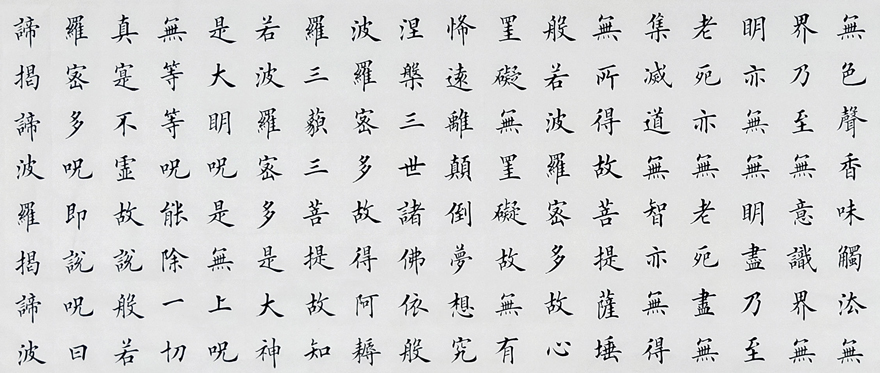 無色聲香味觸法無
界乃至無意識界無
明亦無無明盡乃至
老死亦無老死盡無
集滅道無智亦無得
無所得故菩提薩埵
般若波羅密多故心
罣礙無罣礙故無有
怖遠離顛倒夢想究
涅槃三世諸佛依般
波羅密多故得阿耨
羅三藐三菩提故知
若波羅密多是大神
是大明呪是無上呪
無等等呪能除一切
真寔不虛故説般若
羅密多呪即説呪曰
諦揭諦波羅揭諦波